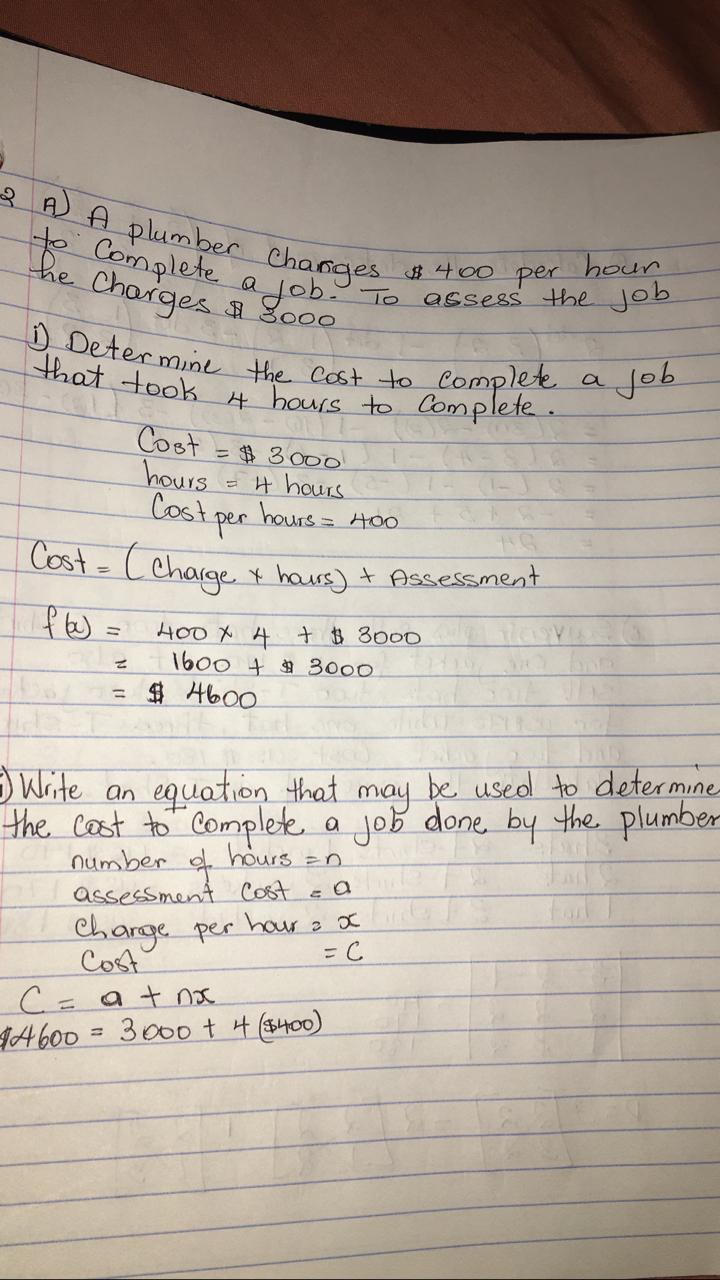 2 A) A plumber charges $400 per hour
to complete a job. To assess the job
he charges $3000
i) Determine the cost to complete a job
that took 4 hours to complete.
Cost = $3000
hours = 4 hours
Cost per hours = 400
Cost = (Charge x hours) + Assessment
f(x) = 400 x 4 + $3000
= 1600 + $3000
= $4600
i) Write an equation that may be used to determine
the cost to complete a job done by the plumber
number of hours = n
assessment cost = a
charge per hour = x
Cost = C
C = a + nx
$4600 = 3000 + 4($400)